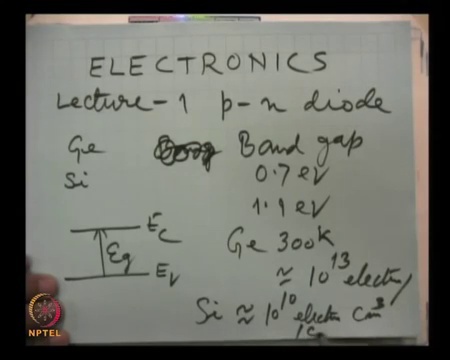 ELECTRONICS
Lecture-1 p-n diode
Ge Band gap
Si 0.7 eV
1.1 eV
Ec
Eg
Ev
Ge 300K
≈ 10^13 electro/
Si ≈ 10^10 electro cm^3
/c
NPTEL